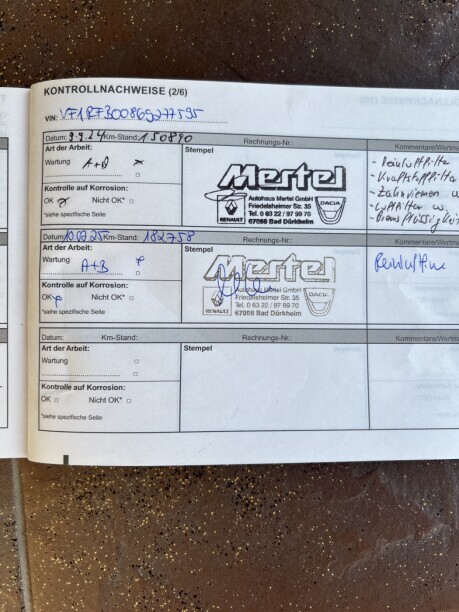 KONTROLLNACHWEISE (2/6)
VIN: VF1RFB00869277595
Datum: 9.9.24 Km-Stand: 150890 Rechnungs-Nr.: Kommentare/Wertm
Art der Arbeit: Stempel
Wartung A+B
Kontrolle auf Korrosion:
OK Nicht OK*
*siehe spezifische Seite
Mertel
Autohaus Mertel GmbH
Friedelsheimer Str. 35
Tel. 0 63 22 / 97 99 70
67098 Bad Dürkheim
RENAULT
DACIA
- Kraftstofffilte
- Zahnriemen w
Datum: 10.09.25 Km-Stand: 182758 Rechnungs-Nr.: Kommentare/Wertm
Art der Arbeit: Stempel
Wartung A+B
Kontrolle auf Korrosion:
OK Nicht OK*
*siehe spezifische Seite
Mertel
Autohaus Mertel GmbH
Friedelsheimer Str. 35
Tel. 0 63 22 / 97 99 70
67098 Bad Dürkheim
RENAULT
DACIA
Datum: Km-Stand: Rechnungs-Nr.: Kommentare/Wertm
Art der Arbeit: Stempel
Wartung
Kontrolle auf Korrosion:
OK Nicht OK*
*siehe spezifische Seite